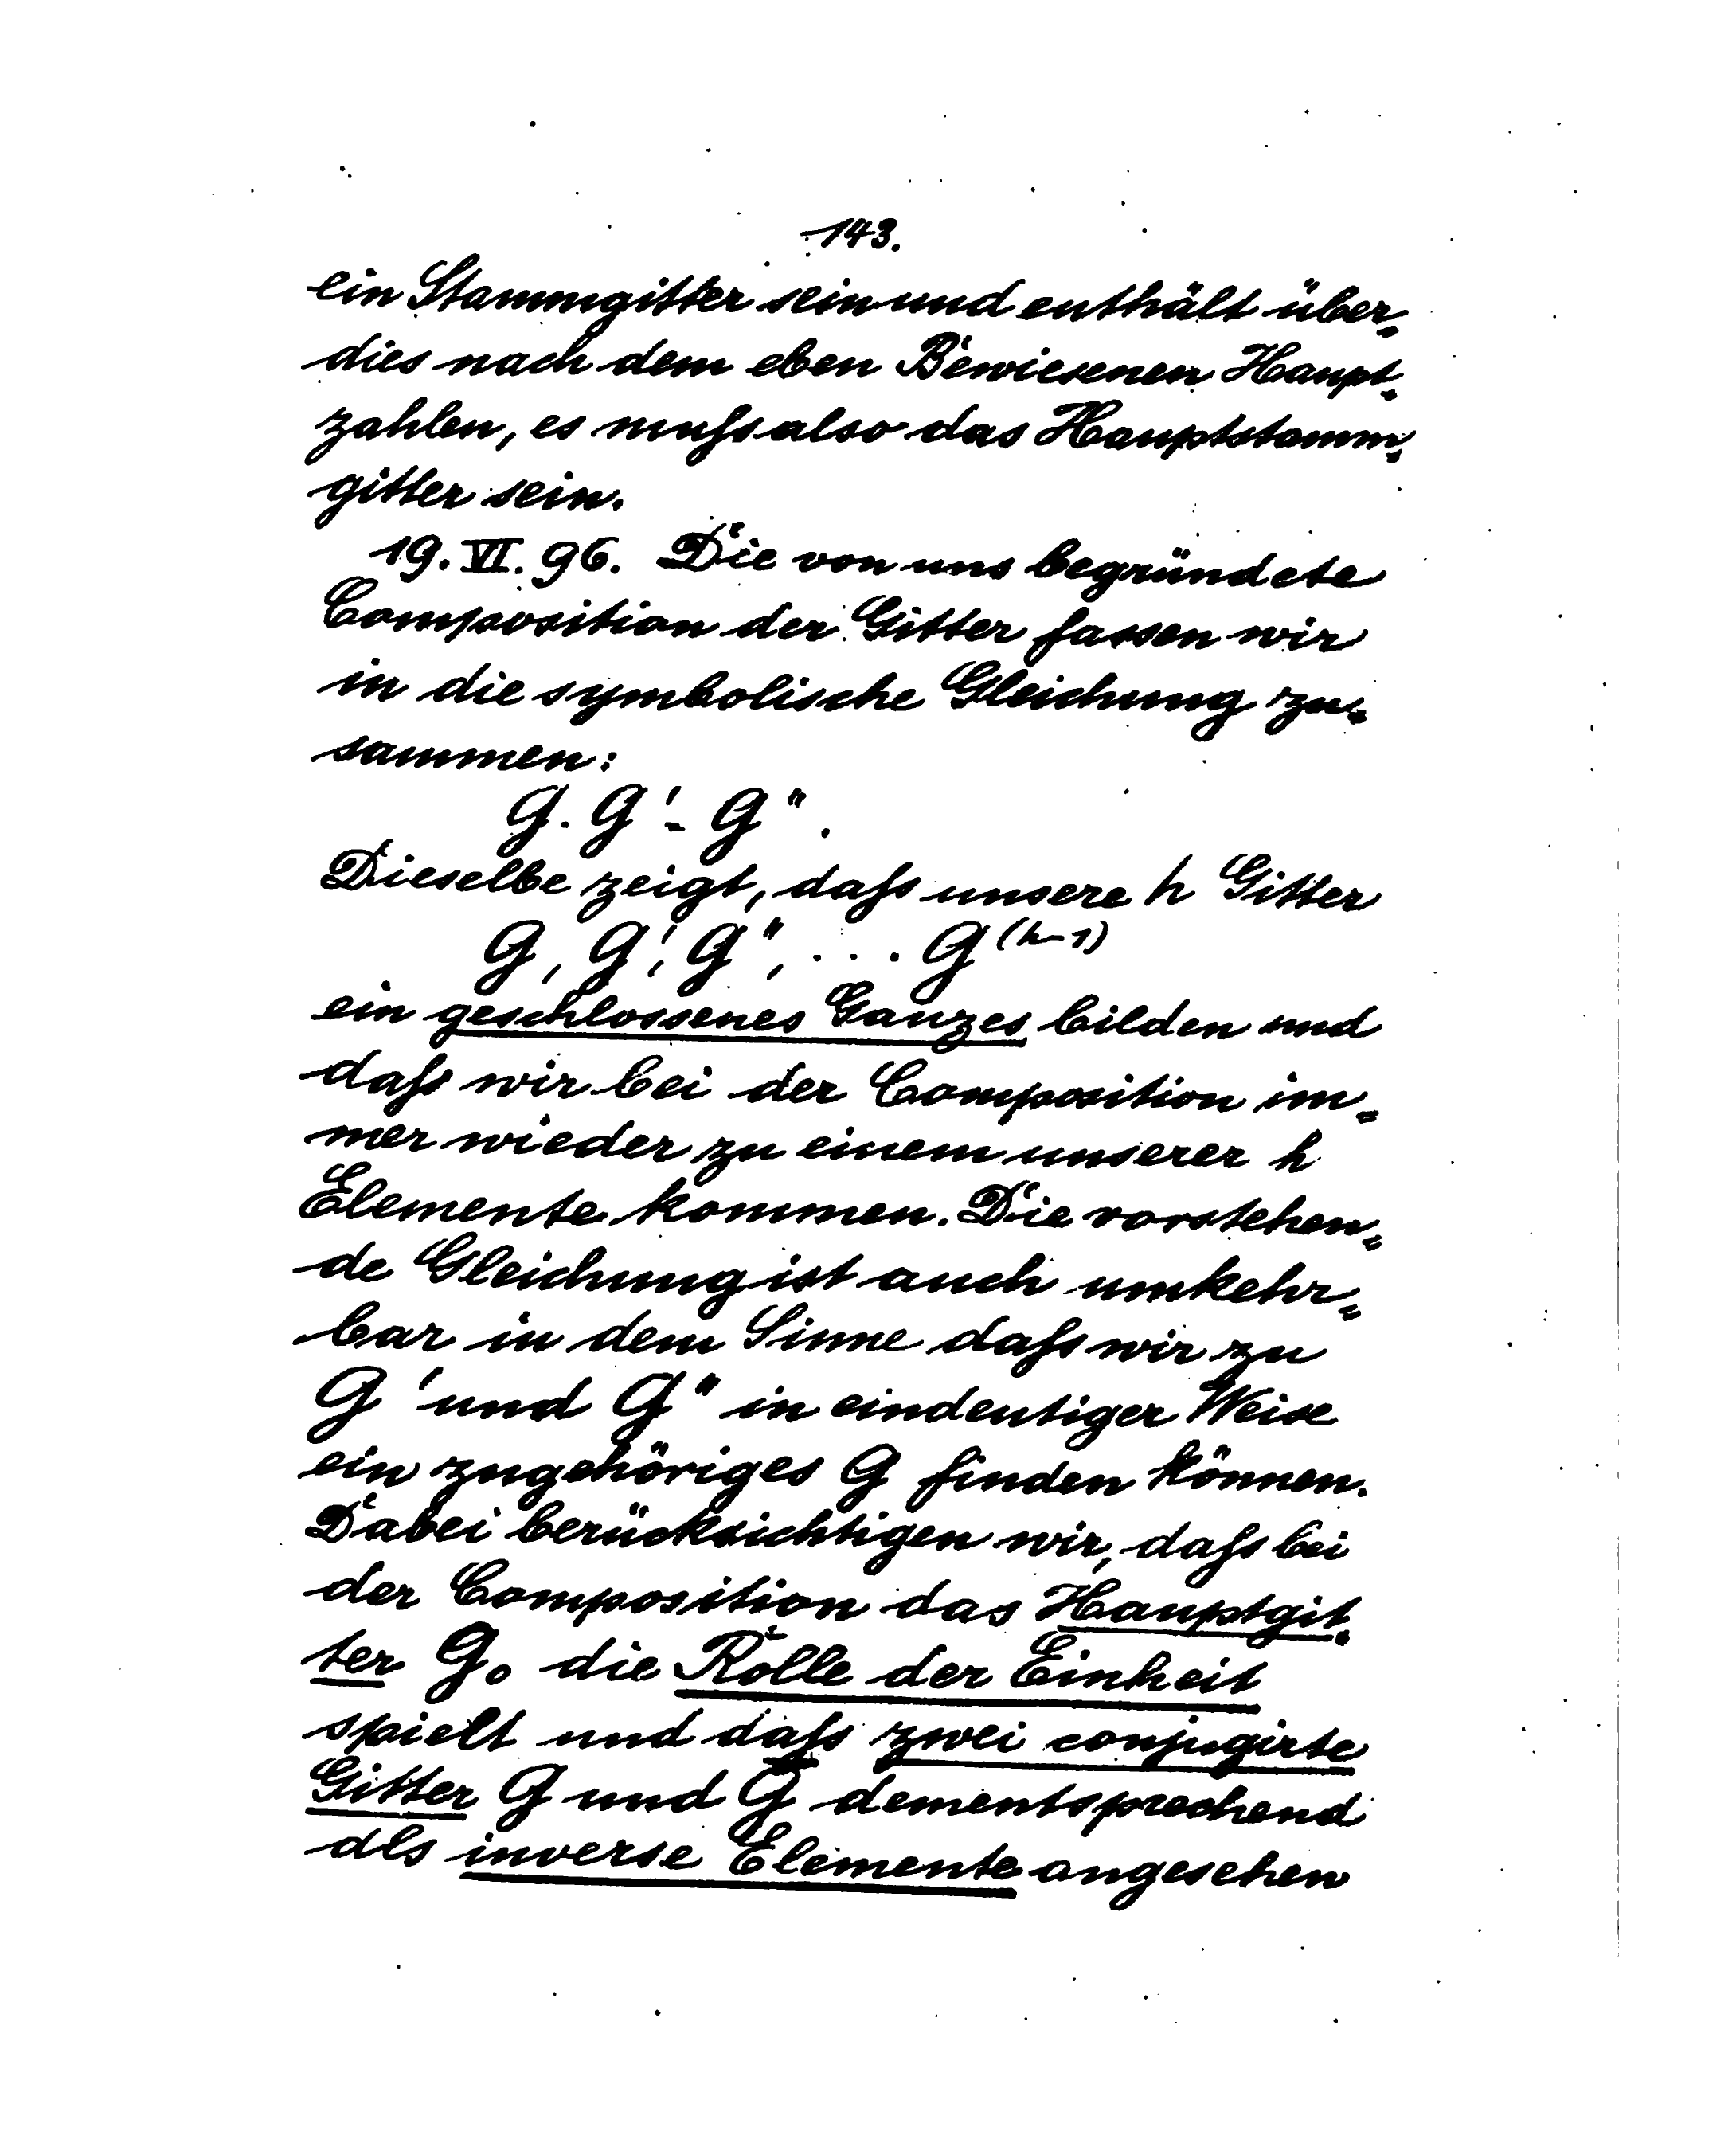 143.
ein Stammgitter sein und enthält über-
dies nach dem eben Bewiesenen Haupt-
zahlen, es muß also das Hauptstamm-
gitter sein.
19. VI. 96. Die von uns begründete
Composition der Gitter fassen wir
in die symbolische Gleichung zu-
sammen:
G. G' = G''.
Dieselbe zeigt, daß unsere h Gitter
G, G', G'', ... G^(h-1)
ein geschlossenes Ganzes bilden und
daß wir bei der Composition im-
mer wieder zu einem unserer h
Elemente kommen. Die vorstehen-
de Gleichung ist auch umkehr-
bar in dem Sinne daß wir zu
G' und G'' in eindeutiger Weise
ein zugehöriges G finden können.
Dabei berücksichtigen wir, daß bei
der Composition das Hauptgit-
ter G₀ die Rolle der Einheit
spielt und daß zwei conjugirte
Gitter G und G̅ dementsprechend
als inverse Elemente angesehen